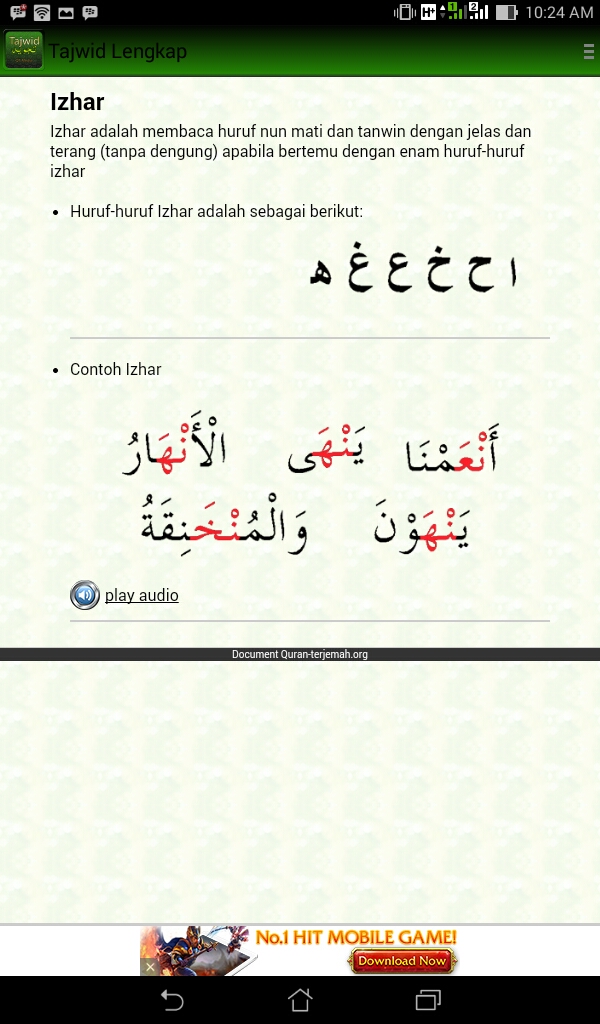 10:24 AM
Tajwid Lengkap
Izhar
Izhar adalah membaca huruf nun mati dan tanwin dengan jelas dan
terang (tanpa dengung) apabila bertemu dengan enam huruf-huruf
izhar
Huruf-huruf Izhar adalah sebagai berikut:
ا ح خ ع غ ه
Contoh Izhar
أَنْعَمْنَا يَنْهَى الْأَنْهَارُ
يَنْهَوْنَ وَالْمُنْخَنِقَةُ
play audio
Document Quran-terjemah.org
No.1 HIT MOBILE GAME!
Download Now